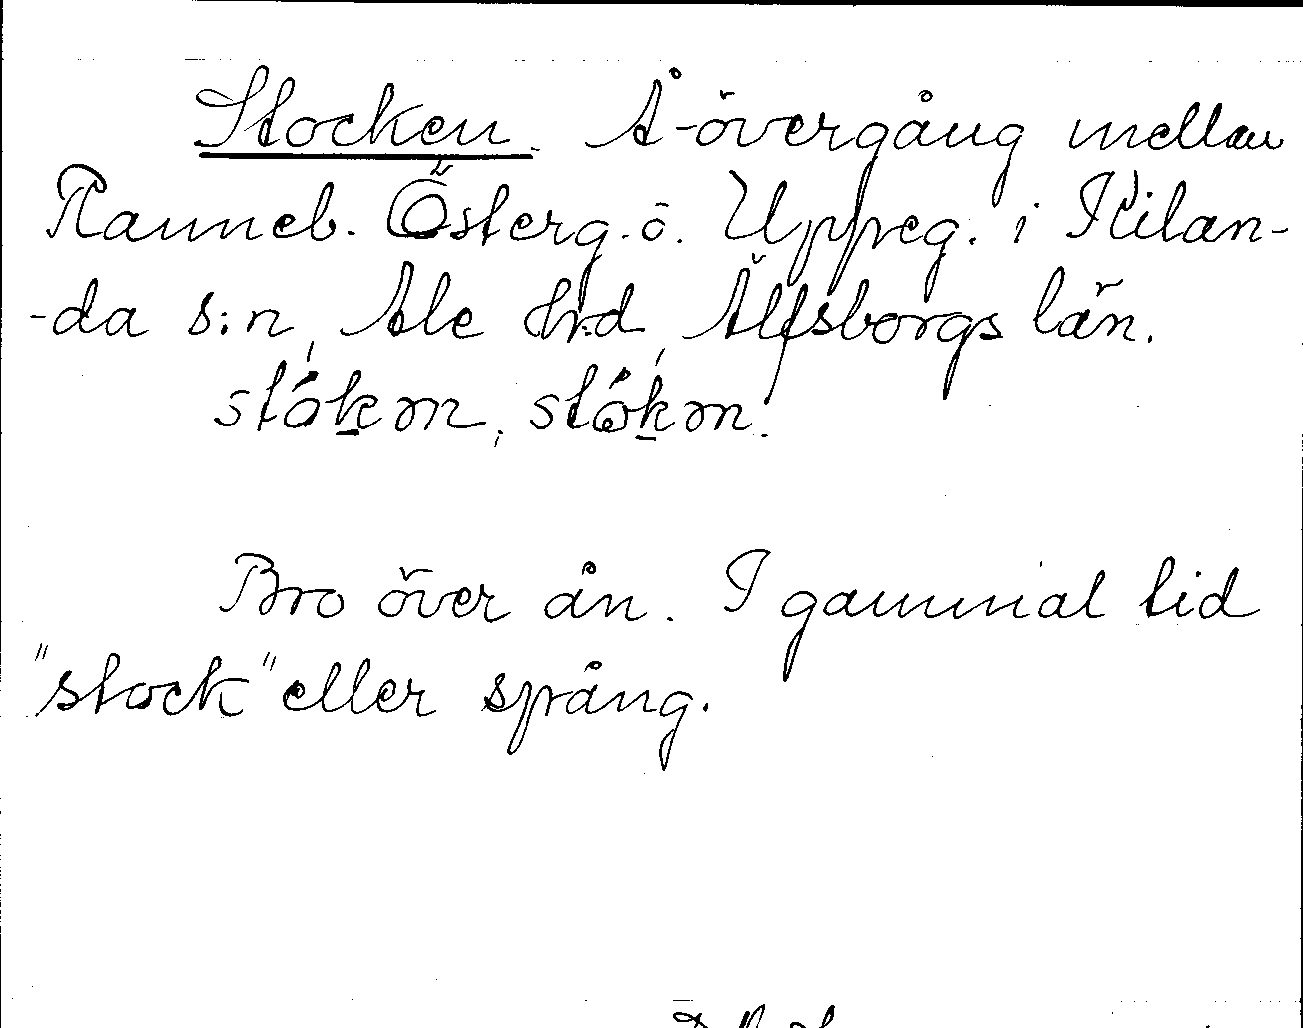 Stocken. Å-övergång mellan
Ranneb. Österg. o. Uppreg. i Kilan-
-da s:n, Ale hrd, Älfsborgs län.
stókɘn, stókɘn.
Bro över ån. I gammal tid
"stock" eller spång.